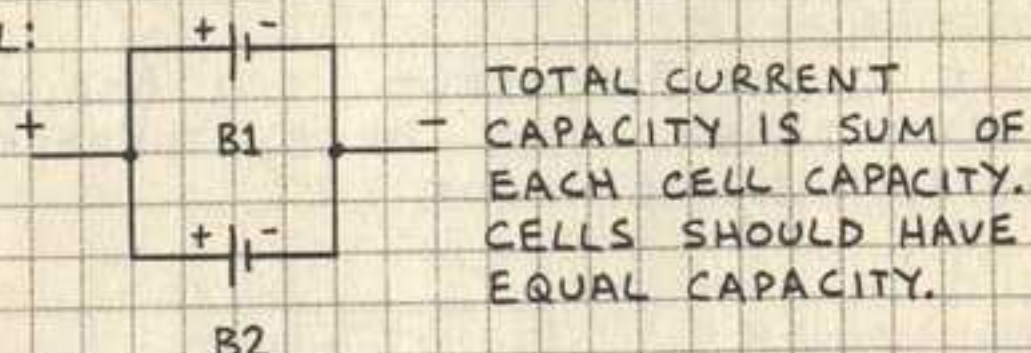 L:
+ -
TOTAL CURRENT
+ B1 - CAPACITY IS SUM OF
EACH CELL CAPACITY.
+ - CELLS SHOULD HAVE
EQUAL CAPACITY.
B2